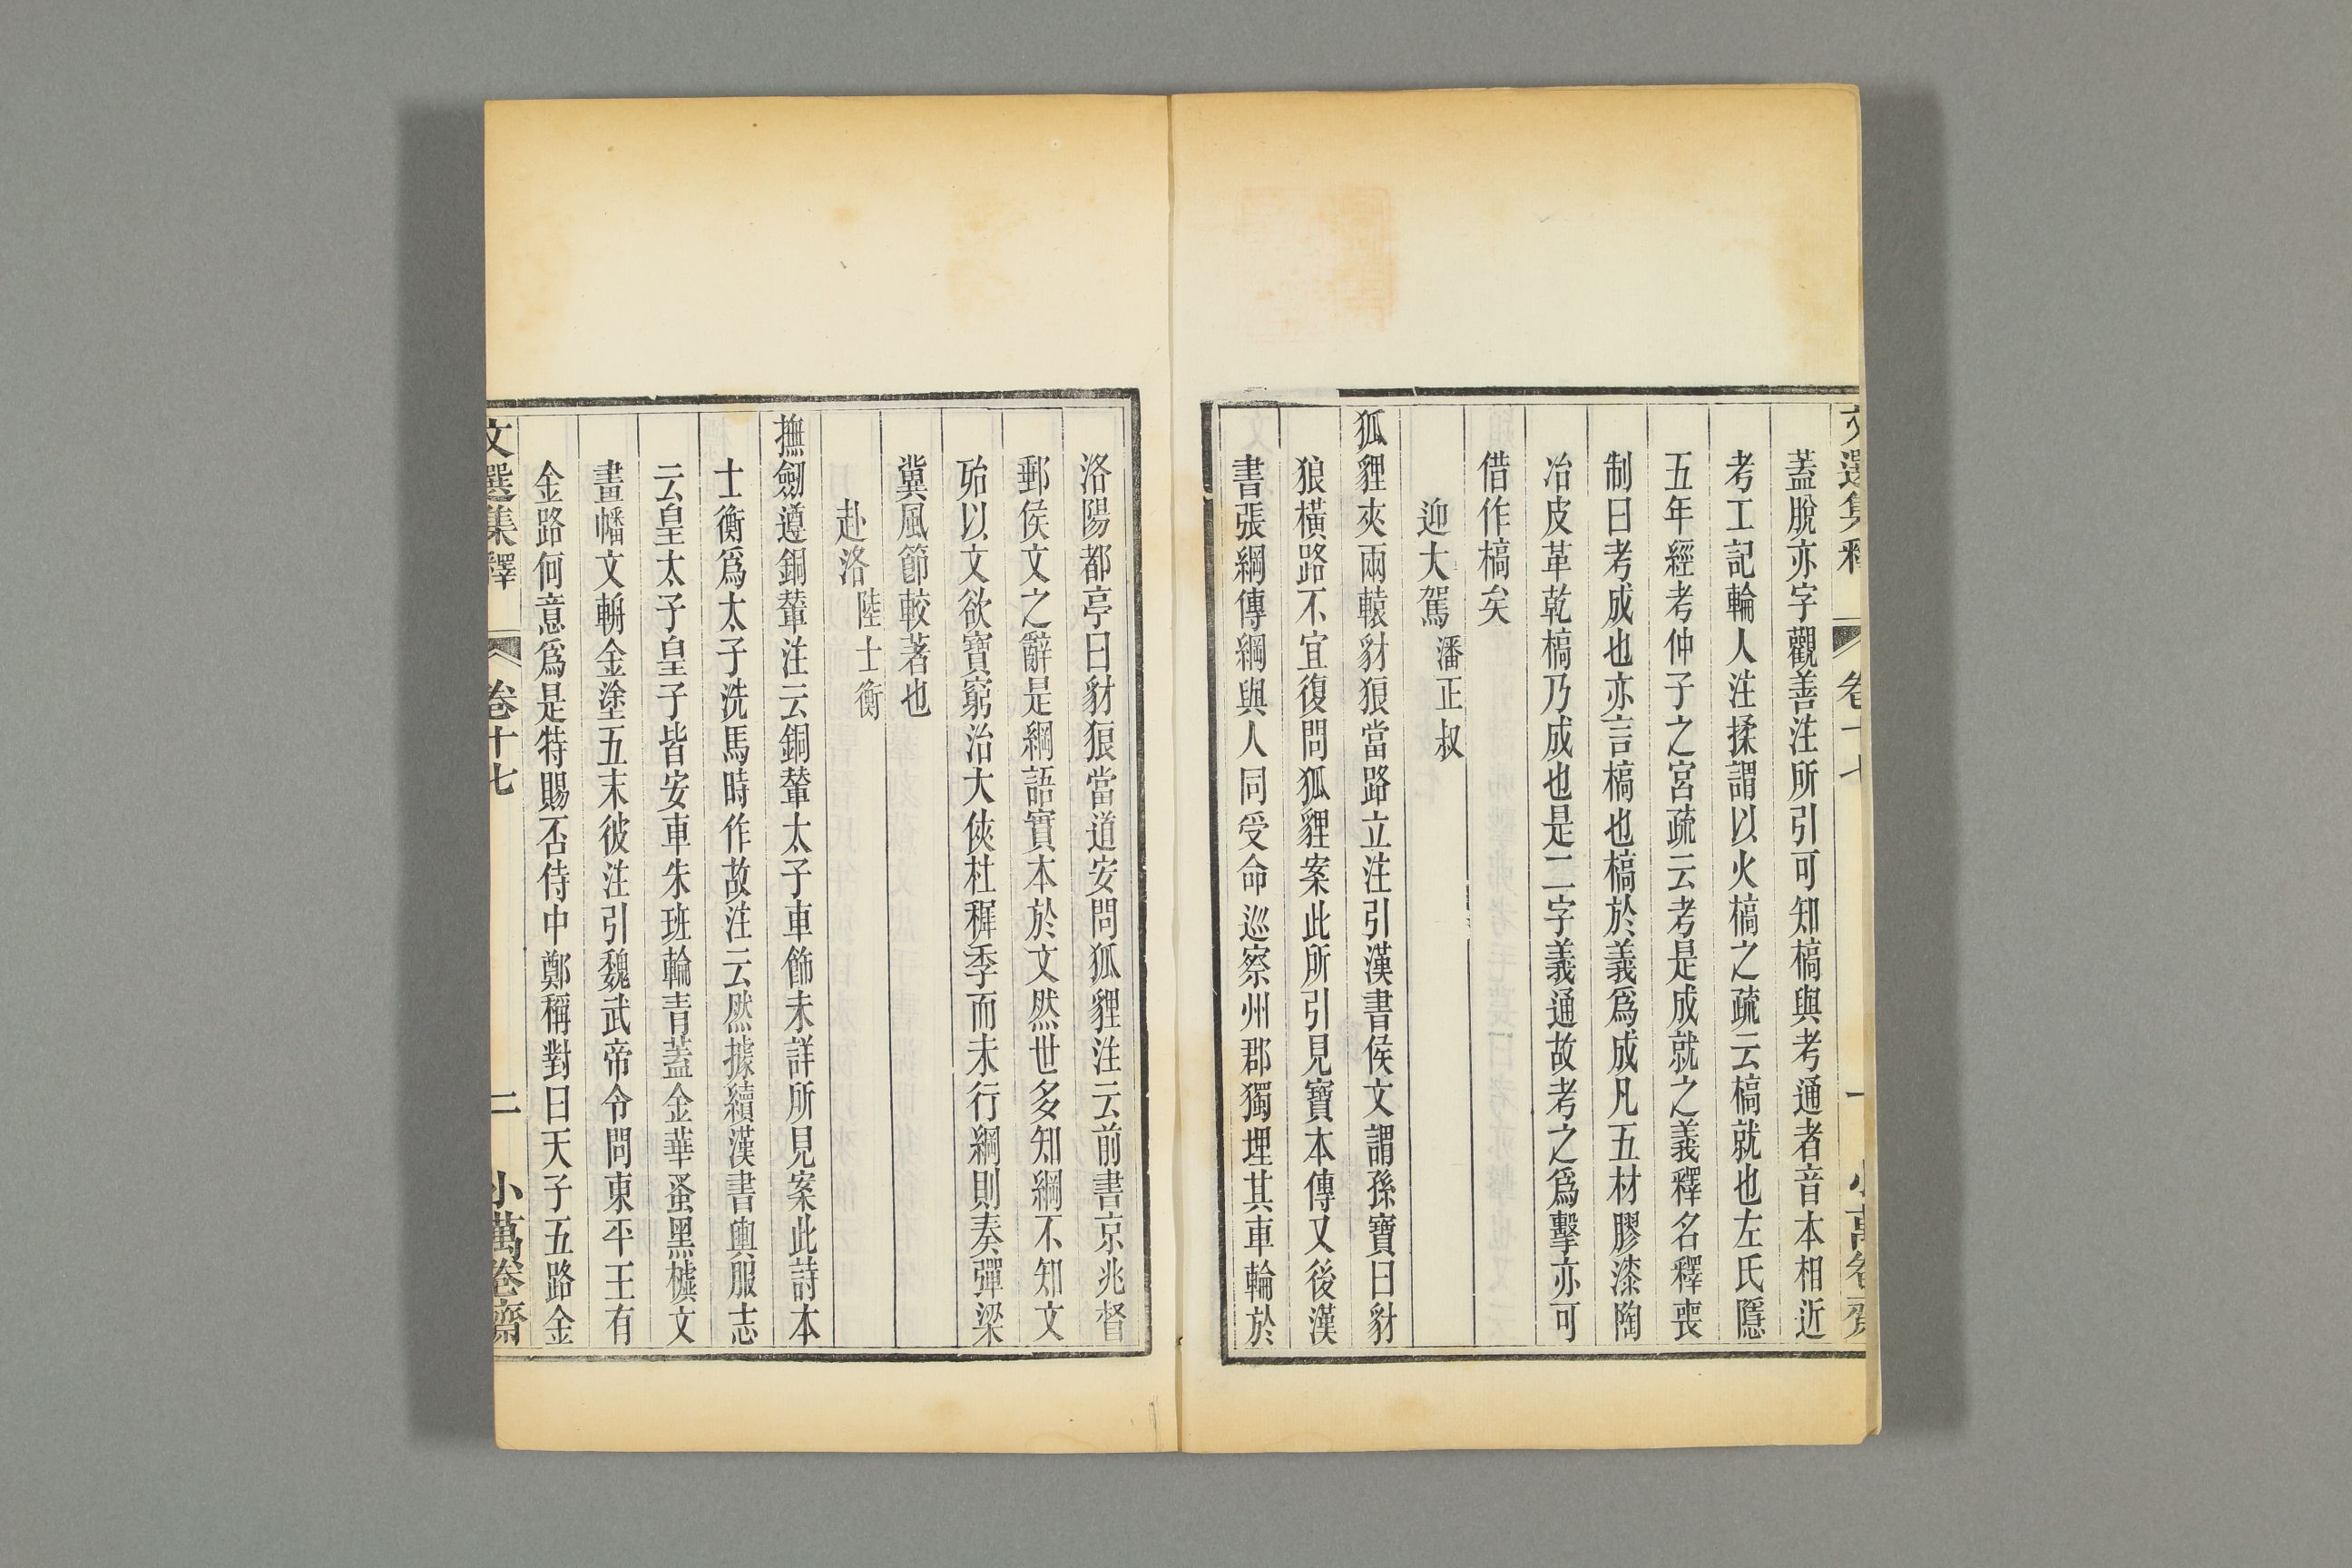 文選集釋 卷十七 一 小萬卷齋
蓋脫亦字觀善注所引可知槁與考通者音本相近
考工記輪人注揉謂以火槁之疏云槁就也左氏隱
五年經考仲子之宮疏云考是成就之義釋名釋喪
制曰考成也亦言槁也槁於義爲成凡五材膠漆陶
冶皮革乾槁乃成也是二字義通故考之爲擊亦可
借作槁矣
迎大駕 潘正叔
狐貍夾兩轅豺狼當路立注引漢書侯文謂孫寶曰豺
狼橫路不宜復問狐貍案此所引見寶本傳又後漢
書張綱傳綱與人同受命巡察州郡獨埋其車輪於
洛陽都亭曰豺狼當道安問狐貍注云前書京兆督
郵侯文之辭是綱語實本於文然世多知綱不知文
殆以文欲寶窮治大俠杜穉季而未行綱則奏彈梁
冀風節較著也
赴洛 陸士衡
撫劒遵銅輦注云銅輦太子車飾未詳所見案此詩本
士衡爲太子洗馬時作故注云然據續漢書輿服志
云皇太子皇子皆安車朱班輪青蓋金華蚤黑櫎文
畫幡文輈金塗五末彼注引魏武帝令問東平王有
金路何意爲是特賜否侍中鄭稱對曰天子五路金
文選集釋 卷十七 二 小萬卷齋